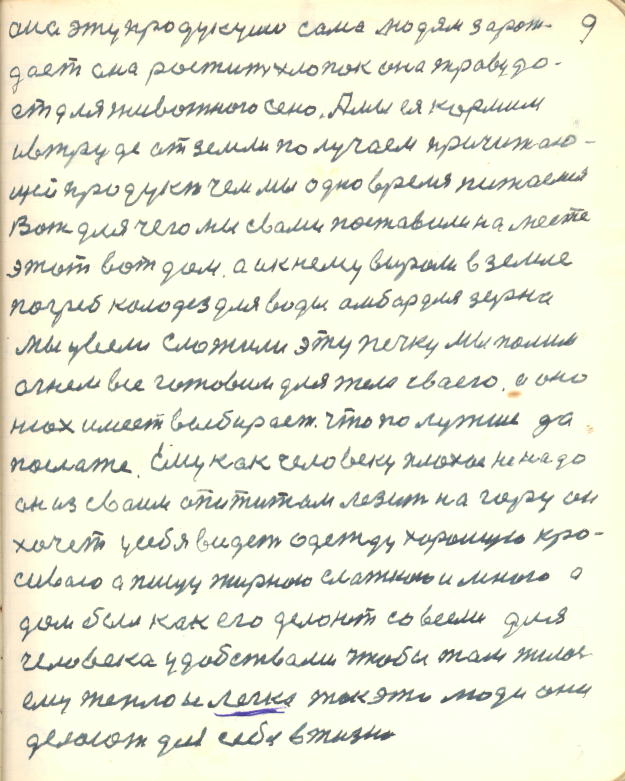 она эту продукцию сама людям зарож- 9
дает она ростит хлопок она траву до-
ст для животного сено. А мы ея кормим
и в труде от земли получаем причитаю-
щей продукт чем мы одно время питаемся
Вот для чего мы с вами поставили на месте
этот вот дом. а и к нему вырыли в земле
погреб колодез для воды амбар для зерна
мы увсели сложили эту печку мы полим
огнем все готовим для тела своего. а оно
нюх имеет выбирает. что получше да
послаже. Ему как человеку плохое не надо
он из своим опититам лезит на гору он
хочет у себя видет одежду хорошую кра-
сиваю а пищу жирною слажкою и много а
дом был как его делоют со всеми для
человека удобствами чтобы там жилос
ему тепло и легка так эти люди они
делоют для себя в жизни